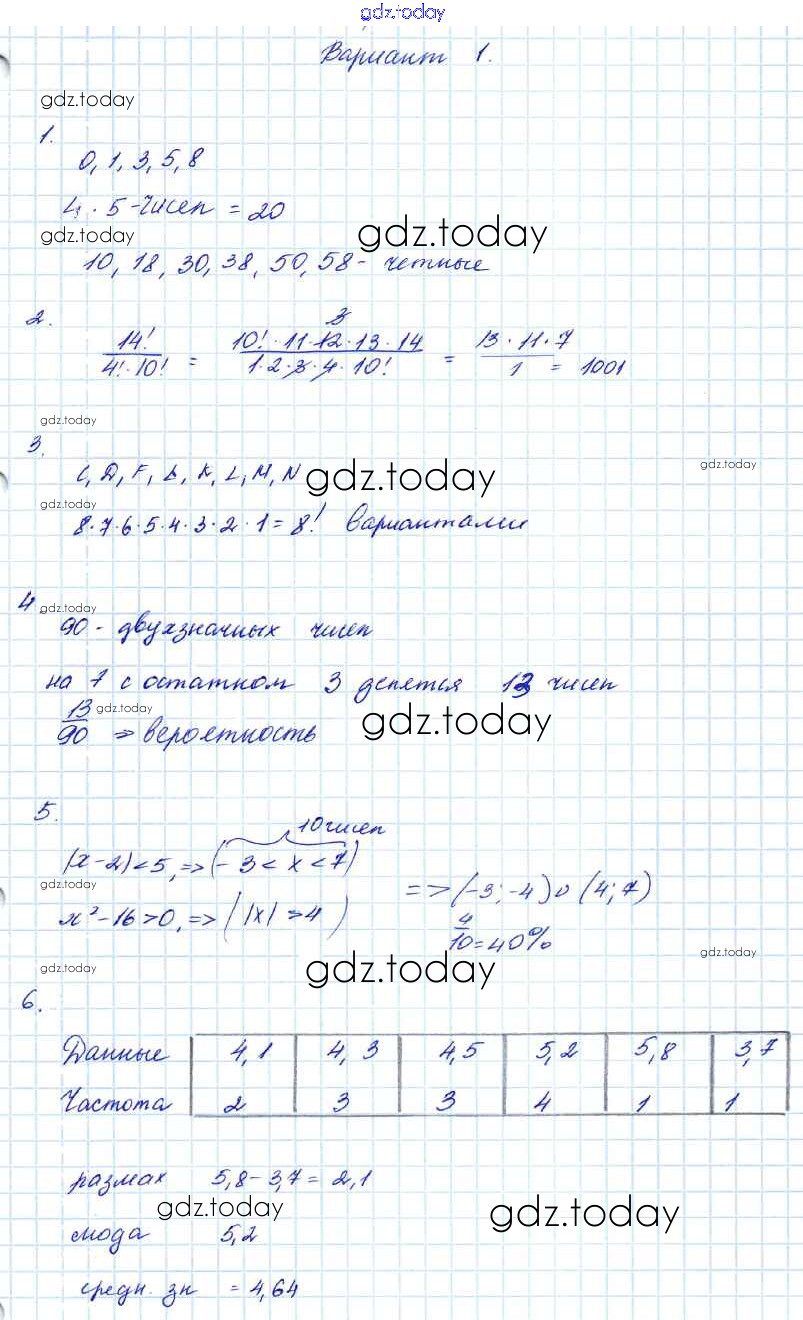 gdz.today
Вариант 1.
gdz.today
1.
0, 1, 3, 5, 8
4 · 5 - чисел = 20
gdz.today
gdz.today
10, 18, 30, 38, 50, 58 - четные
2.
14! / 4! · 10! = 10! · 11 · 12 · 13 · 14 / 1 · 2 · 3 · 4 · 10! = 13 · 11 · 7 / 1 = 1001
3
gdz.today
3.
C, D, F, K, L, M, N
gdz.today
gdz.today
gdz.today
8·7·6·5·4·3·2·1 = 8! вариантами
4
gdz.today
90 - двухзначных чисел
на 7 с остатком 3 делятся 13 чисел
13/90 => вероятность
gdz.today
gdz.today
5.
10 чисел
|x-2| < 5, => (-3 < x < 7)
gdz.today
=> (-3; -4) ∪ (4; 7)
x² - 16 > 0, => (|x| > 4)
4/10 = 40%
gdz.today
gdz.today
gdz.today
6.
Данные 4,1 4,3 4,5 5,2 5,8 3,7
Частота 2 3 3 4 1 1
размах 5,8 - 3,7 = 2,1
gdz.today
gdz.today
мода 5,2
средн. зн = 4,64